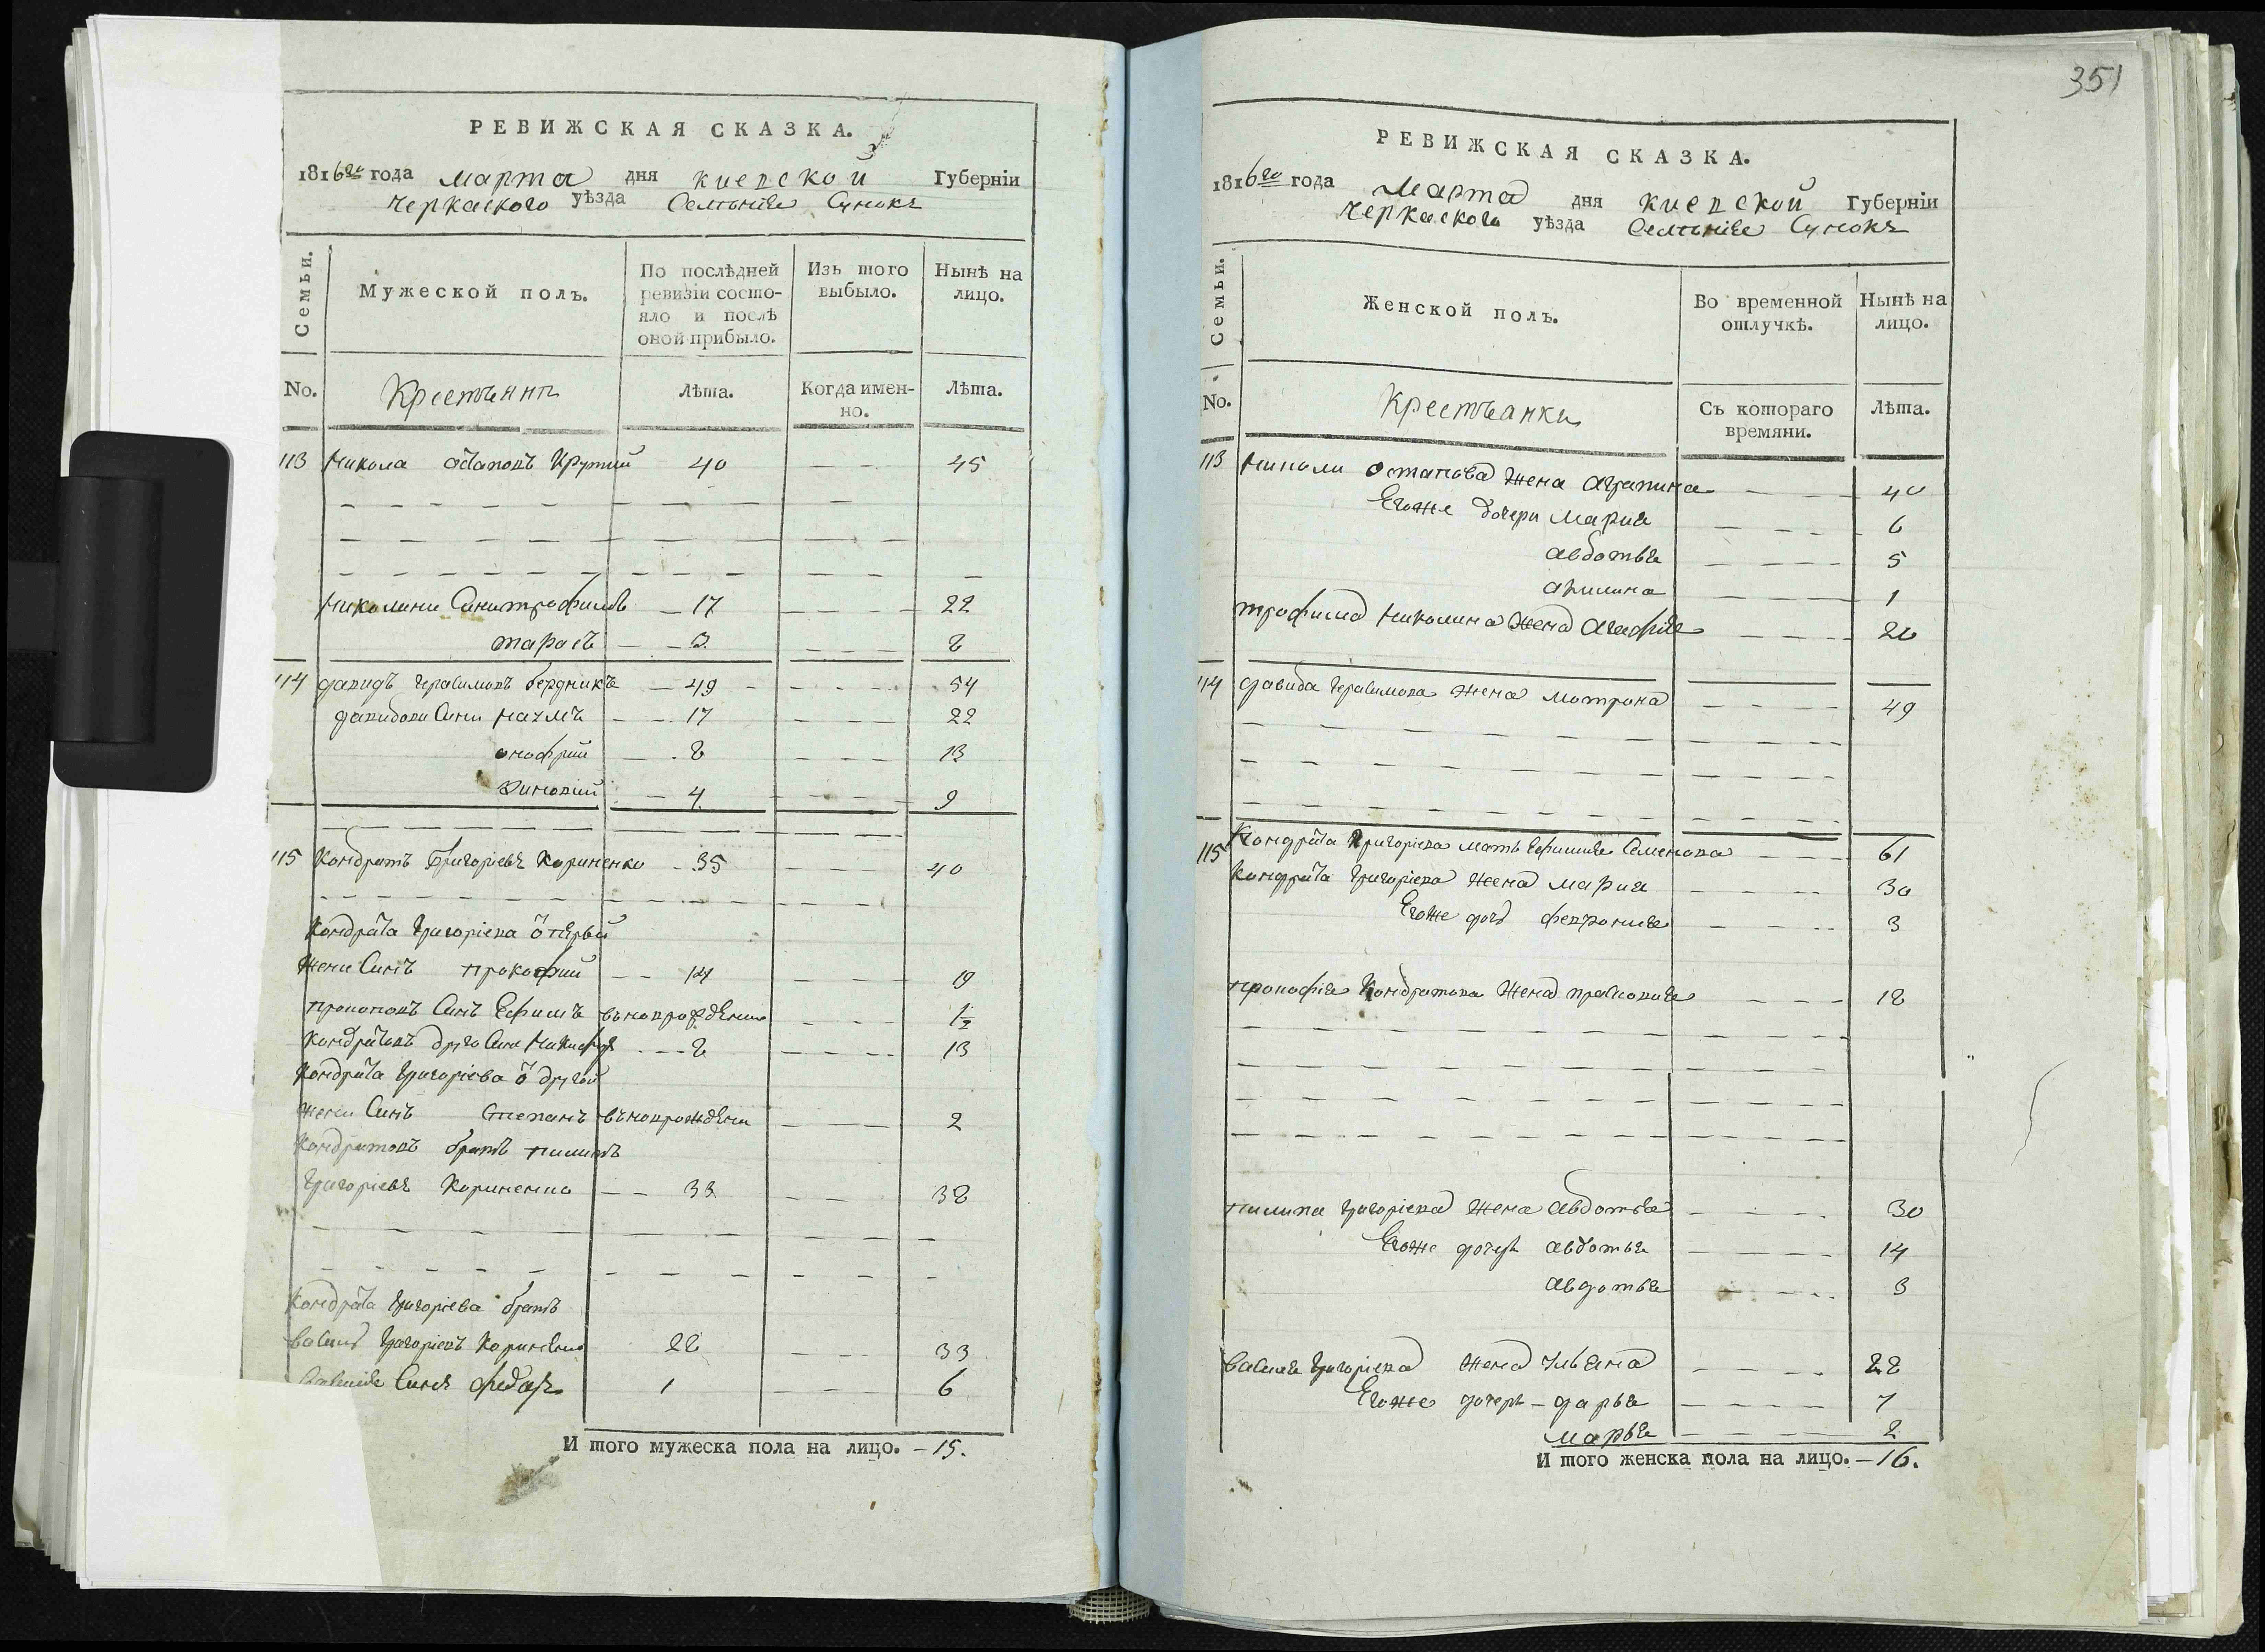 РЕВИЖСКАЯ СКАЗКА.
1816го года марта дня киевской Губернїи
Черкаского уѣзда Селѣнїя Сунокъ
Семьи.
Мужеской полъ.
По послѣдней ревизїи состояло и послѣ оной прибыло.
Изъ того выбыло.
Нынѣ на лицо.
No.
Крестьяни
Лѣта.
Когда именно.
Лѣта.
113 Никола Остаповъ Крутий 40 — — 45
Николини Сини трофимъ — 17 — — — 22
тарасъ — — 3 — — — 8
114 давидъ герасимовъ бердникъ — 49 — — — 54
давидови Сини наумъ — — 17 — — — 22
онофрий — — 8 — — — 13
Зиновий — 4 — — — 9
115 Кондратъ Григорїевъ Кориненко — 35 — — 40
Кондрата Григорїева о первой
жени Синъ прокофий — — 14 — — 19
прокоповъ Синъ Ефимъ вьноврождени — — — 1½
Кондратовъ други Синъ Никифоръ — — 8 — — — 13
Кондрата Григорїева о другой
жени Синъ Степанъ вьноврождени — — — 2
Кондратовъ братъ пилипъ
Григорїевъ Кориненко — — 33 — — 38
Кондрата Григорїева братъ
Василъ Григорїевъ Кориненко 28 — — 33
Синъ федоръ 1 — — 6
И того мужеска пола на лицо. — 15.
351
РЕВИЖСКАЯ СКАЗКА.
1816го года Марта дня киевской Губернїи
Черкаского уѣзда Селѣнїя Сунокъ
Семьи.
Женской полъ.
Во временной отлучкѣ.
Нынѣ на лицо.
No.
Крестьянки
Съ котораго времяни.
Лѣта.
113 Николи Остапова жена Агрипина — — — 40
Егоже дочери Мария — — — 6
авдотья — — — — 5
1
трофима Николина жена Агафия — — — — 20
114 давида герасимова жена мотрона — — — — 49
115 Кондрата Григорїева мать Ефимия Семенова — — — 61
Кондрата Григорїева жена Мария — — — — 30
Егоже дочь феврония — — — — 3
прокофия Кондратова жена прасковия — — — 18
пилипа Григорїева жена авдотья — — — — 30
Егоже дочери авдотья — — — — 14
авдотья — — — — 3
Василя Григорїева жена Ульяна — — — — 28
Егоже дочери — дарья — — — — 7
марья — — — — 2
И того женска пола на лицо. — 16.